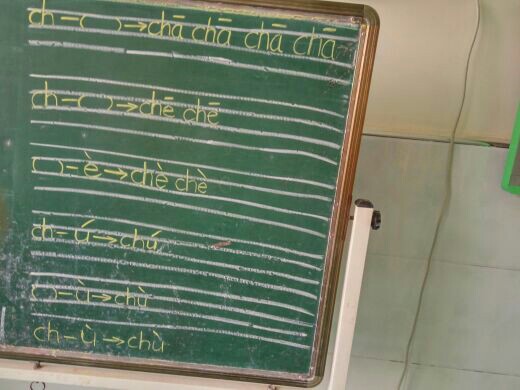 ch-( )→chā chā chā chā
ch-( )→chē chē
( )-è→chè chè
ch-ú→chú
( )-ù→chù
ch-ù→chù